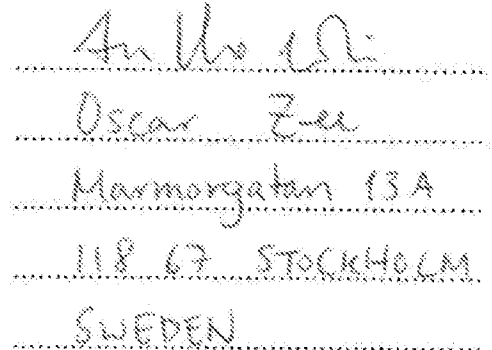 Oscar Zee
Marmorgatan 13A
118 67 STOCKHOLM
SWEDEN